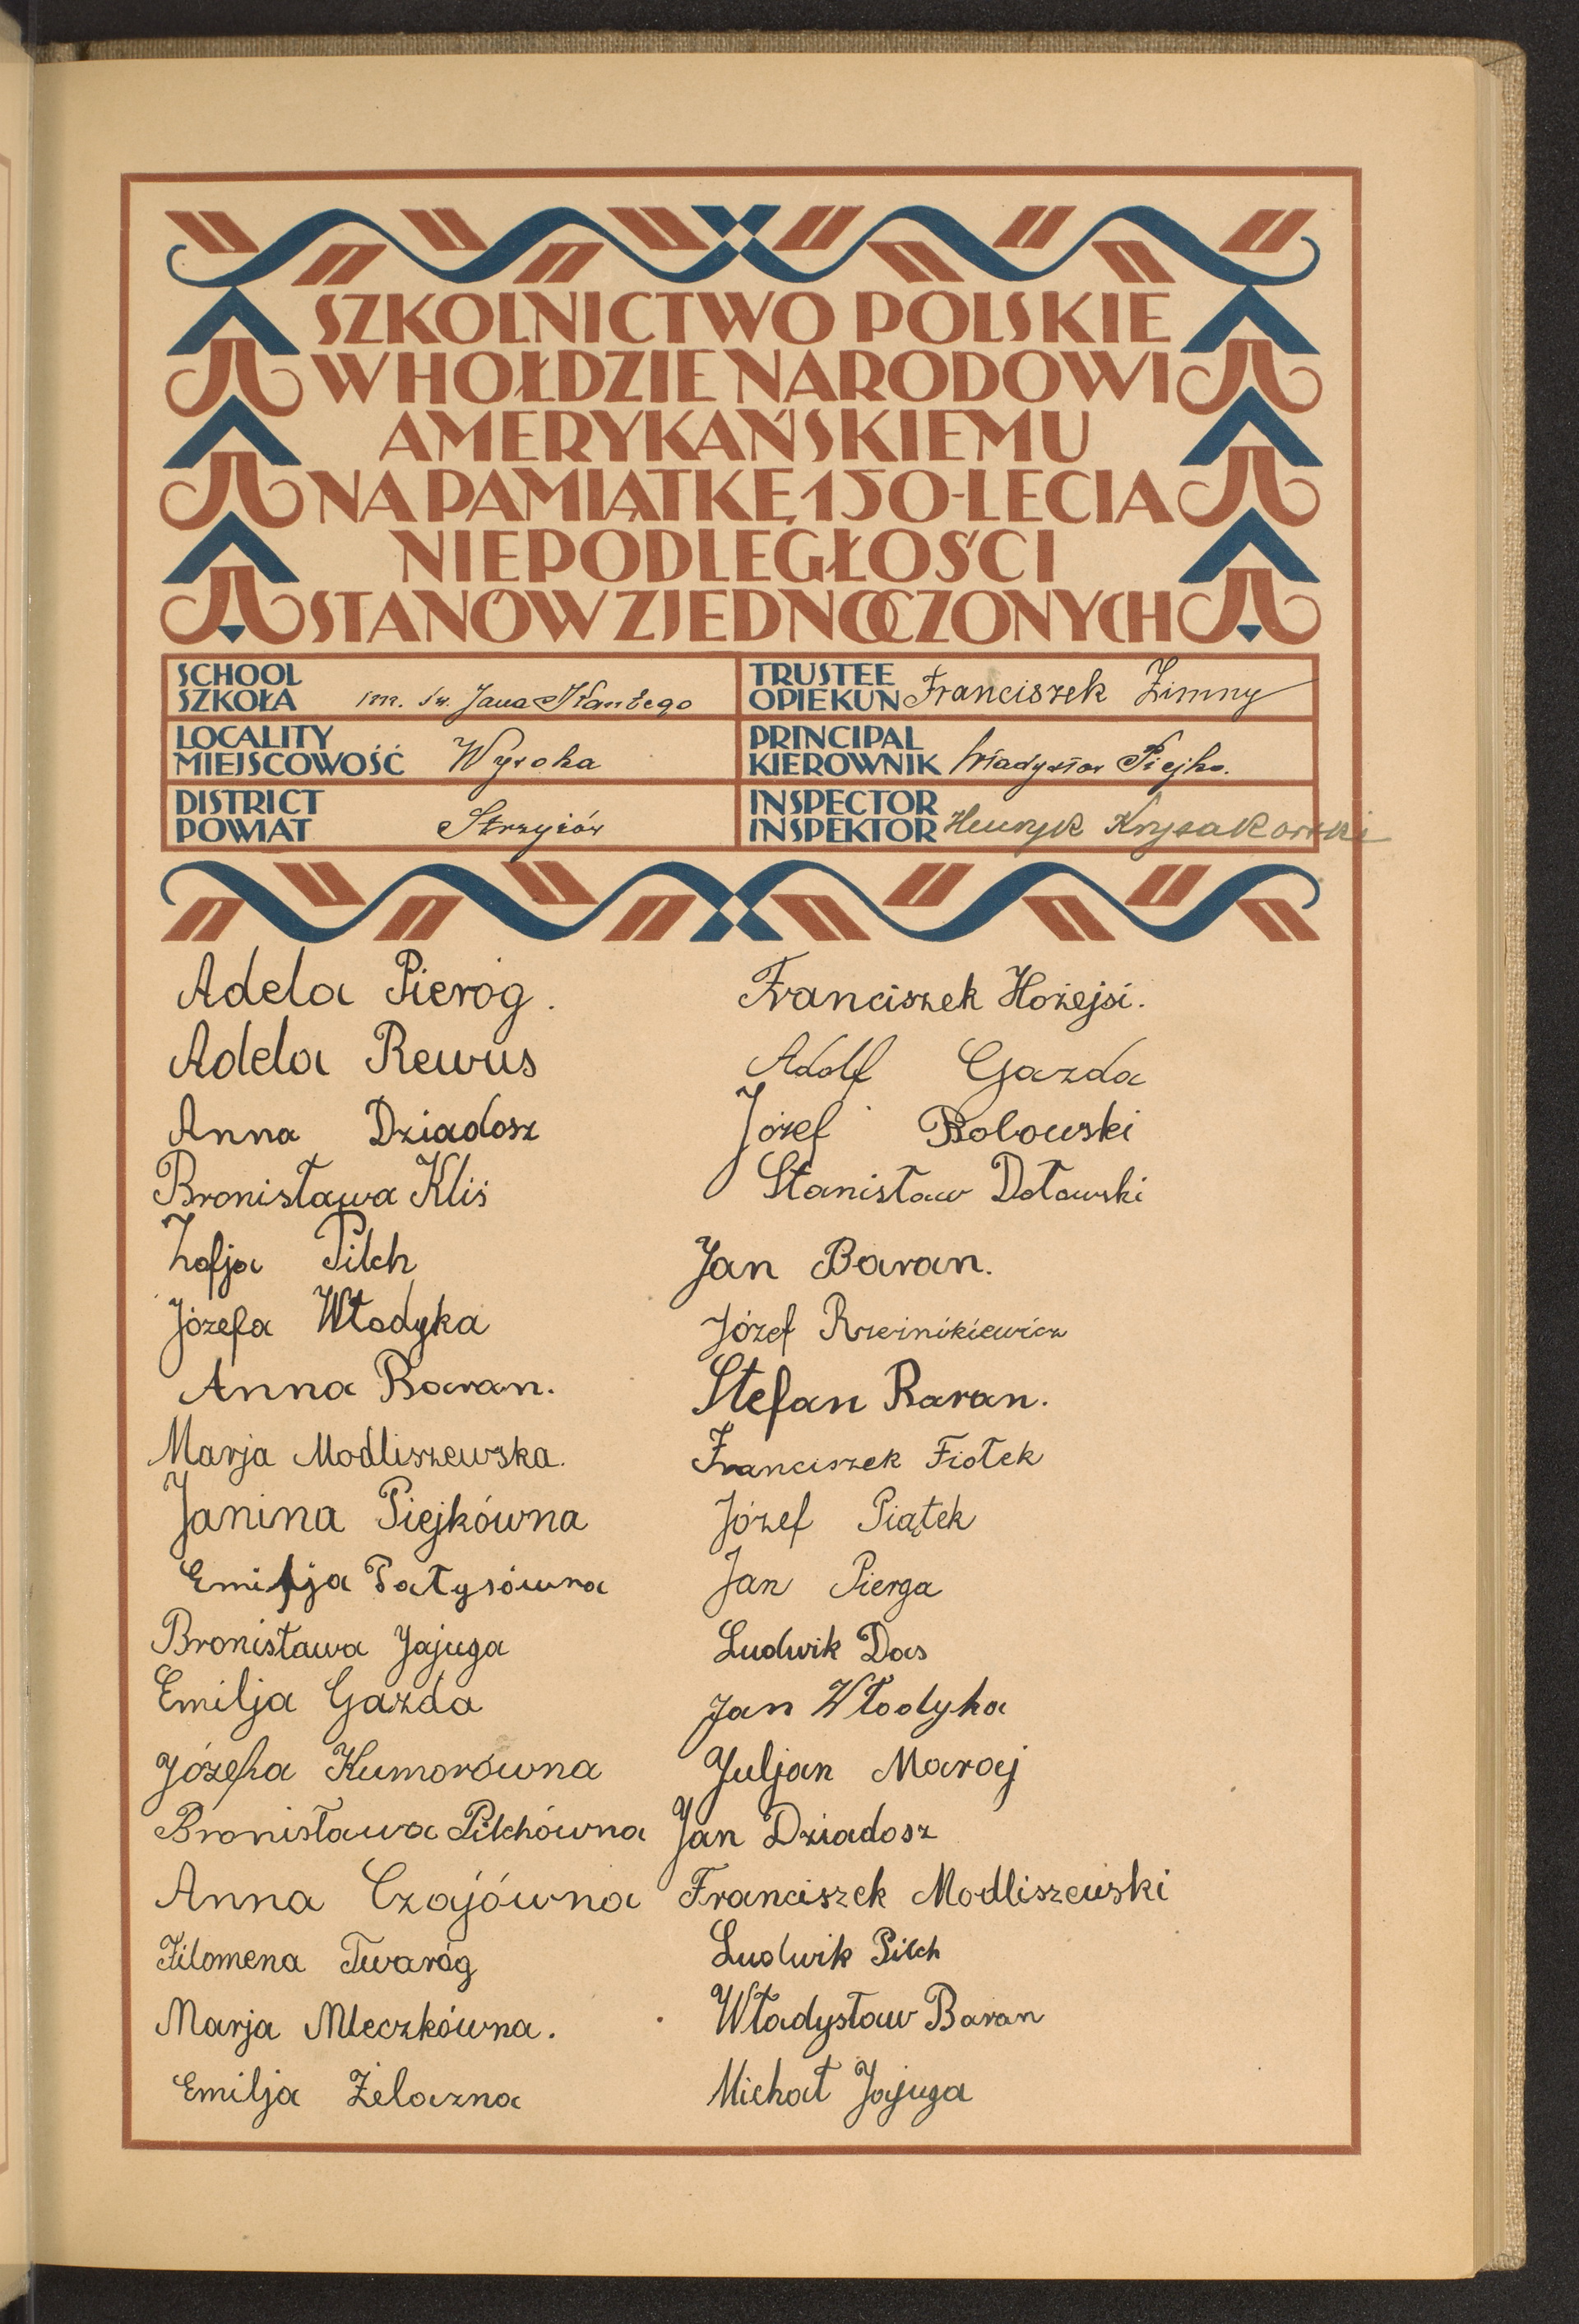 SZKOLNICTWO POLSKIE
W HOŁDZIE NARODOWI
AMERYKAŃSKIEMU
NA PAMIĄTKĘ 150-LECIA
NIEPODLEGŁOŚCI
STANÓW ZJEDNOCZONYCH
SCHOOL
SZKOŁA im. św. Jana Kantego
TRUSTEE
OPIEKUN Franciszek Zimny
LOCALITY
MIEJSCOWOŚĆ Wysoka
PRINCIPAL
KIEROWNIK Władysław Piejko.
DISTRICT
POWIAT Strzyżów
INSPECTOR
INSPEKTOR Henryk Krysakowski
Adela Pieróg.
Adela Rewus
Anna Dziadosz
Bronisława Kliś
Zofja Pilch
Józefa Włodyka
Anna Baran.
Marja Modliszewska.
Janina Piejkówna
Emilja Patysówna
Bronisława Jajuga
Emilja Gazda
Józefa Kumorówna
Bronisława Pilchówna
Anna Czajówna
Filomena Twaróg
Marja Mleczkówna.
Emilja Żelazna
Franciszek Hożejsi.
Adolf Gazda
Józef Bobowski
Stanisław Dotowski
Jan Baran.
Józef
Stefan Baran.
Franciszek Fiołek
Józef Piątek
Jan Pierga
Ludwik Das
Jan Włodyka
Juljan Maroj
Jan Dziadosz
Franciszek Modliszewski
Ludwik Pilch
Władysław Baran
Michał Jajuga